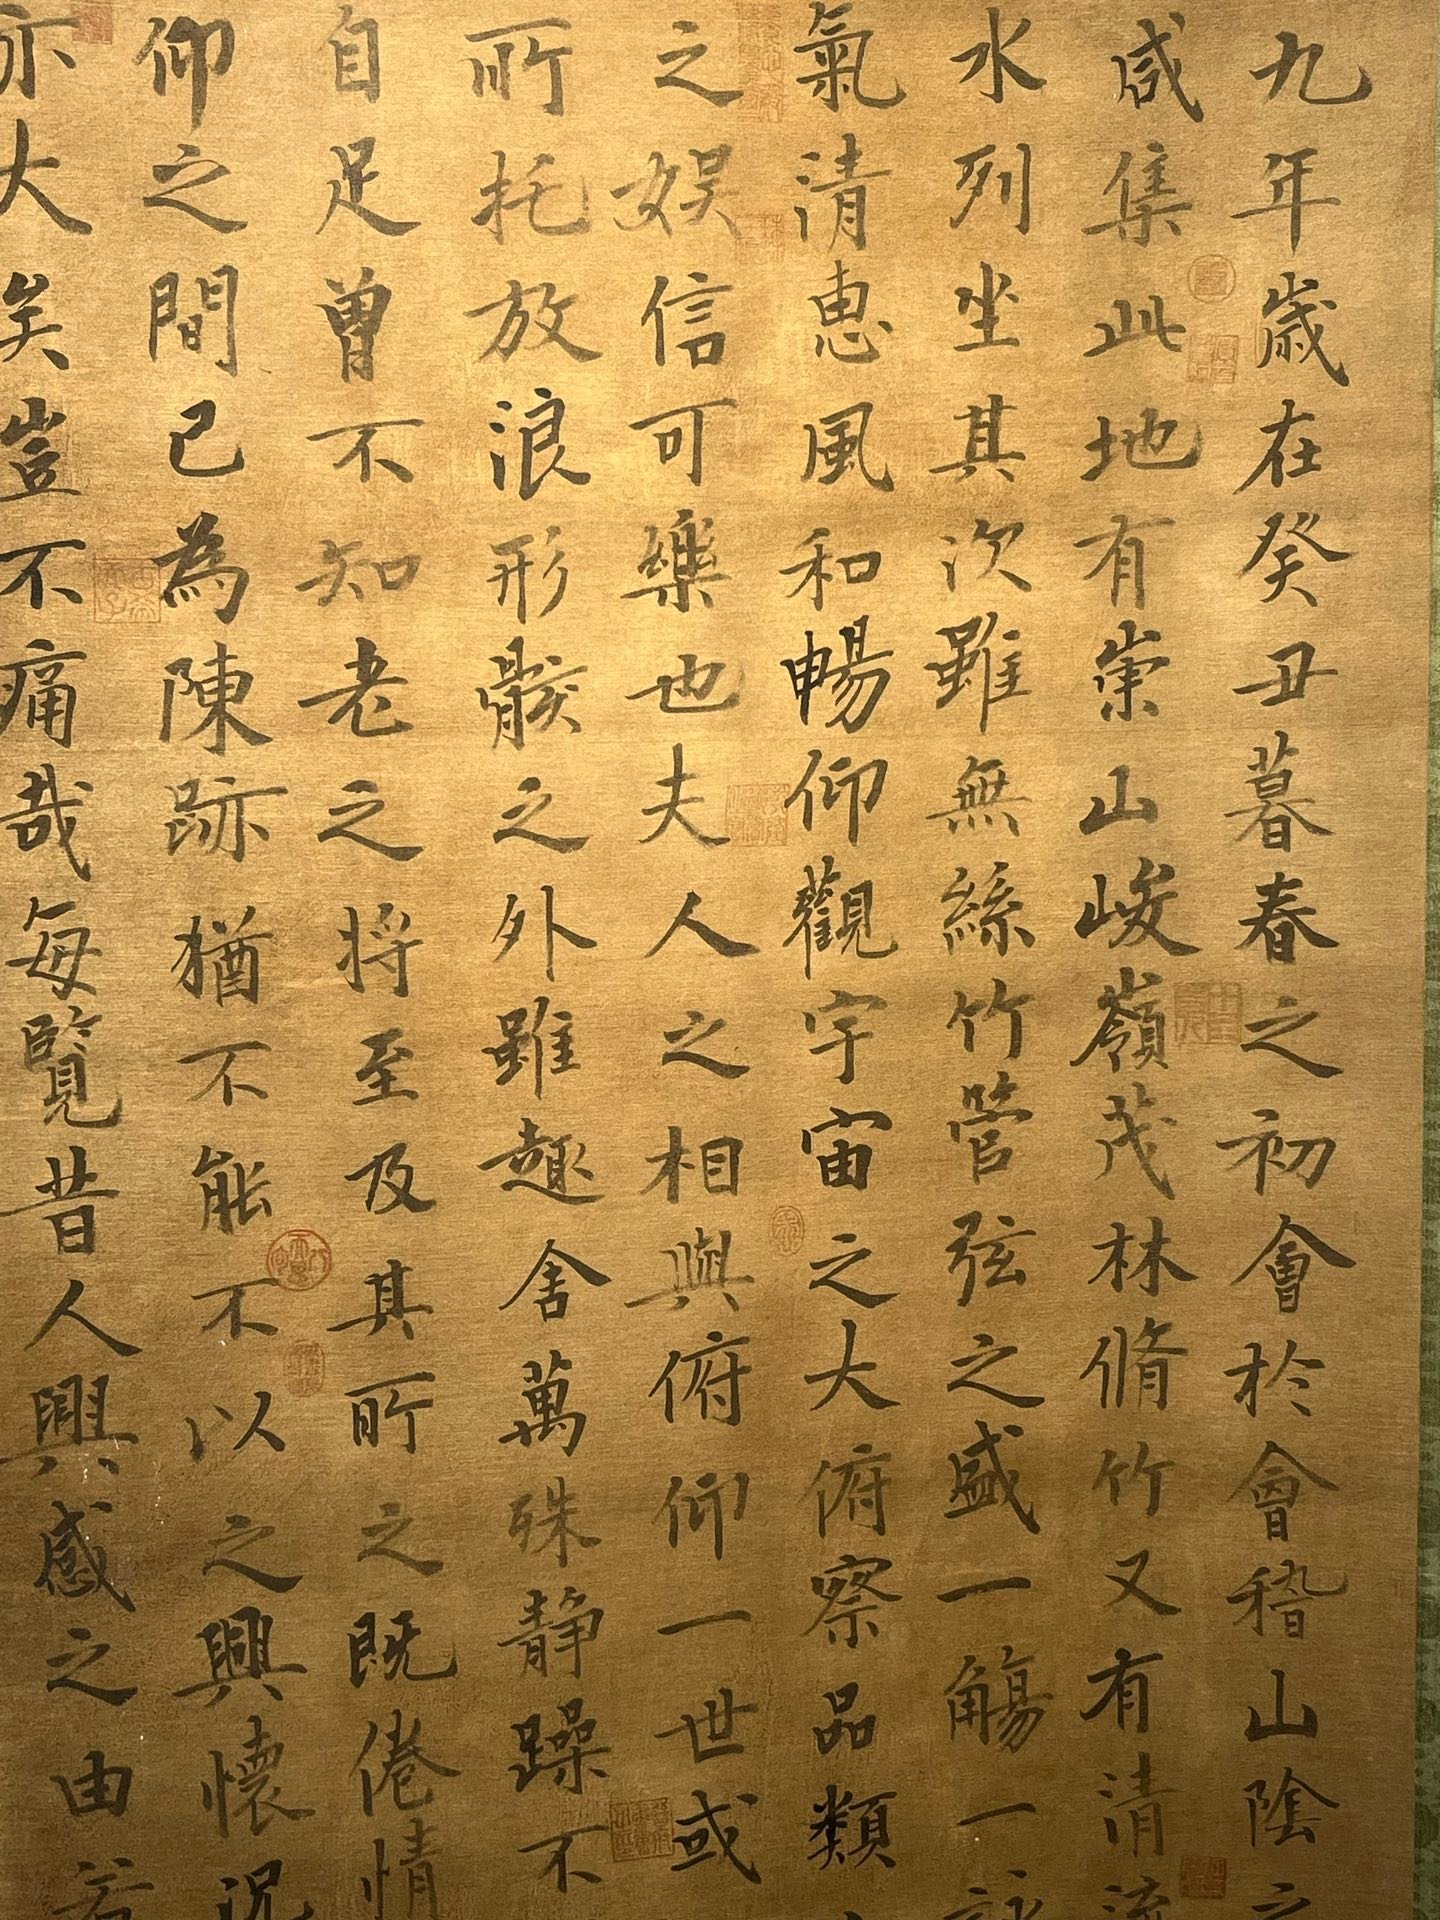 九年歳在癸丑暮春之初會於會稽山陰之
咸集此地有崇山峻嶺茂林脩竹又有清流
水列坐其次雖無絲竹管弦之盛一觴一詠
氣清惠風和暢仰觀宇宙之大俯察品類
之娛信可樂也夫人之相與俯仰一世或
所托放浪形骸之外雖趣舍萬殊靜躁不
自足曾不知老之將至及其所之既倦情
仰之間已為陳跡猶不能不以之興懷況
亦大矣豈不痛哉每覽昔人興感之由若